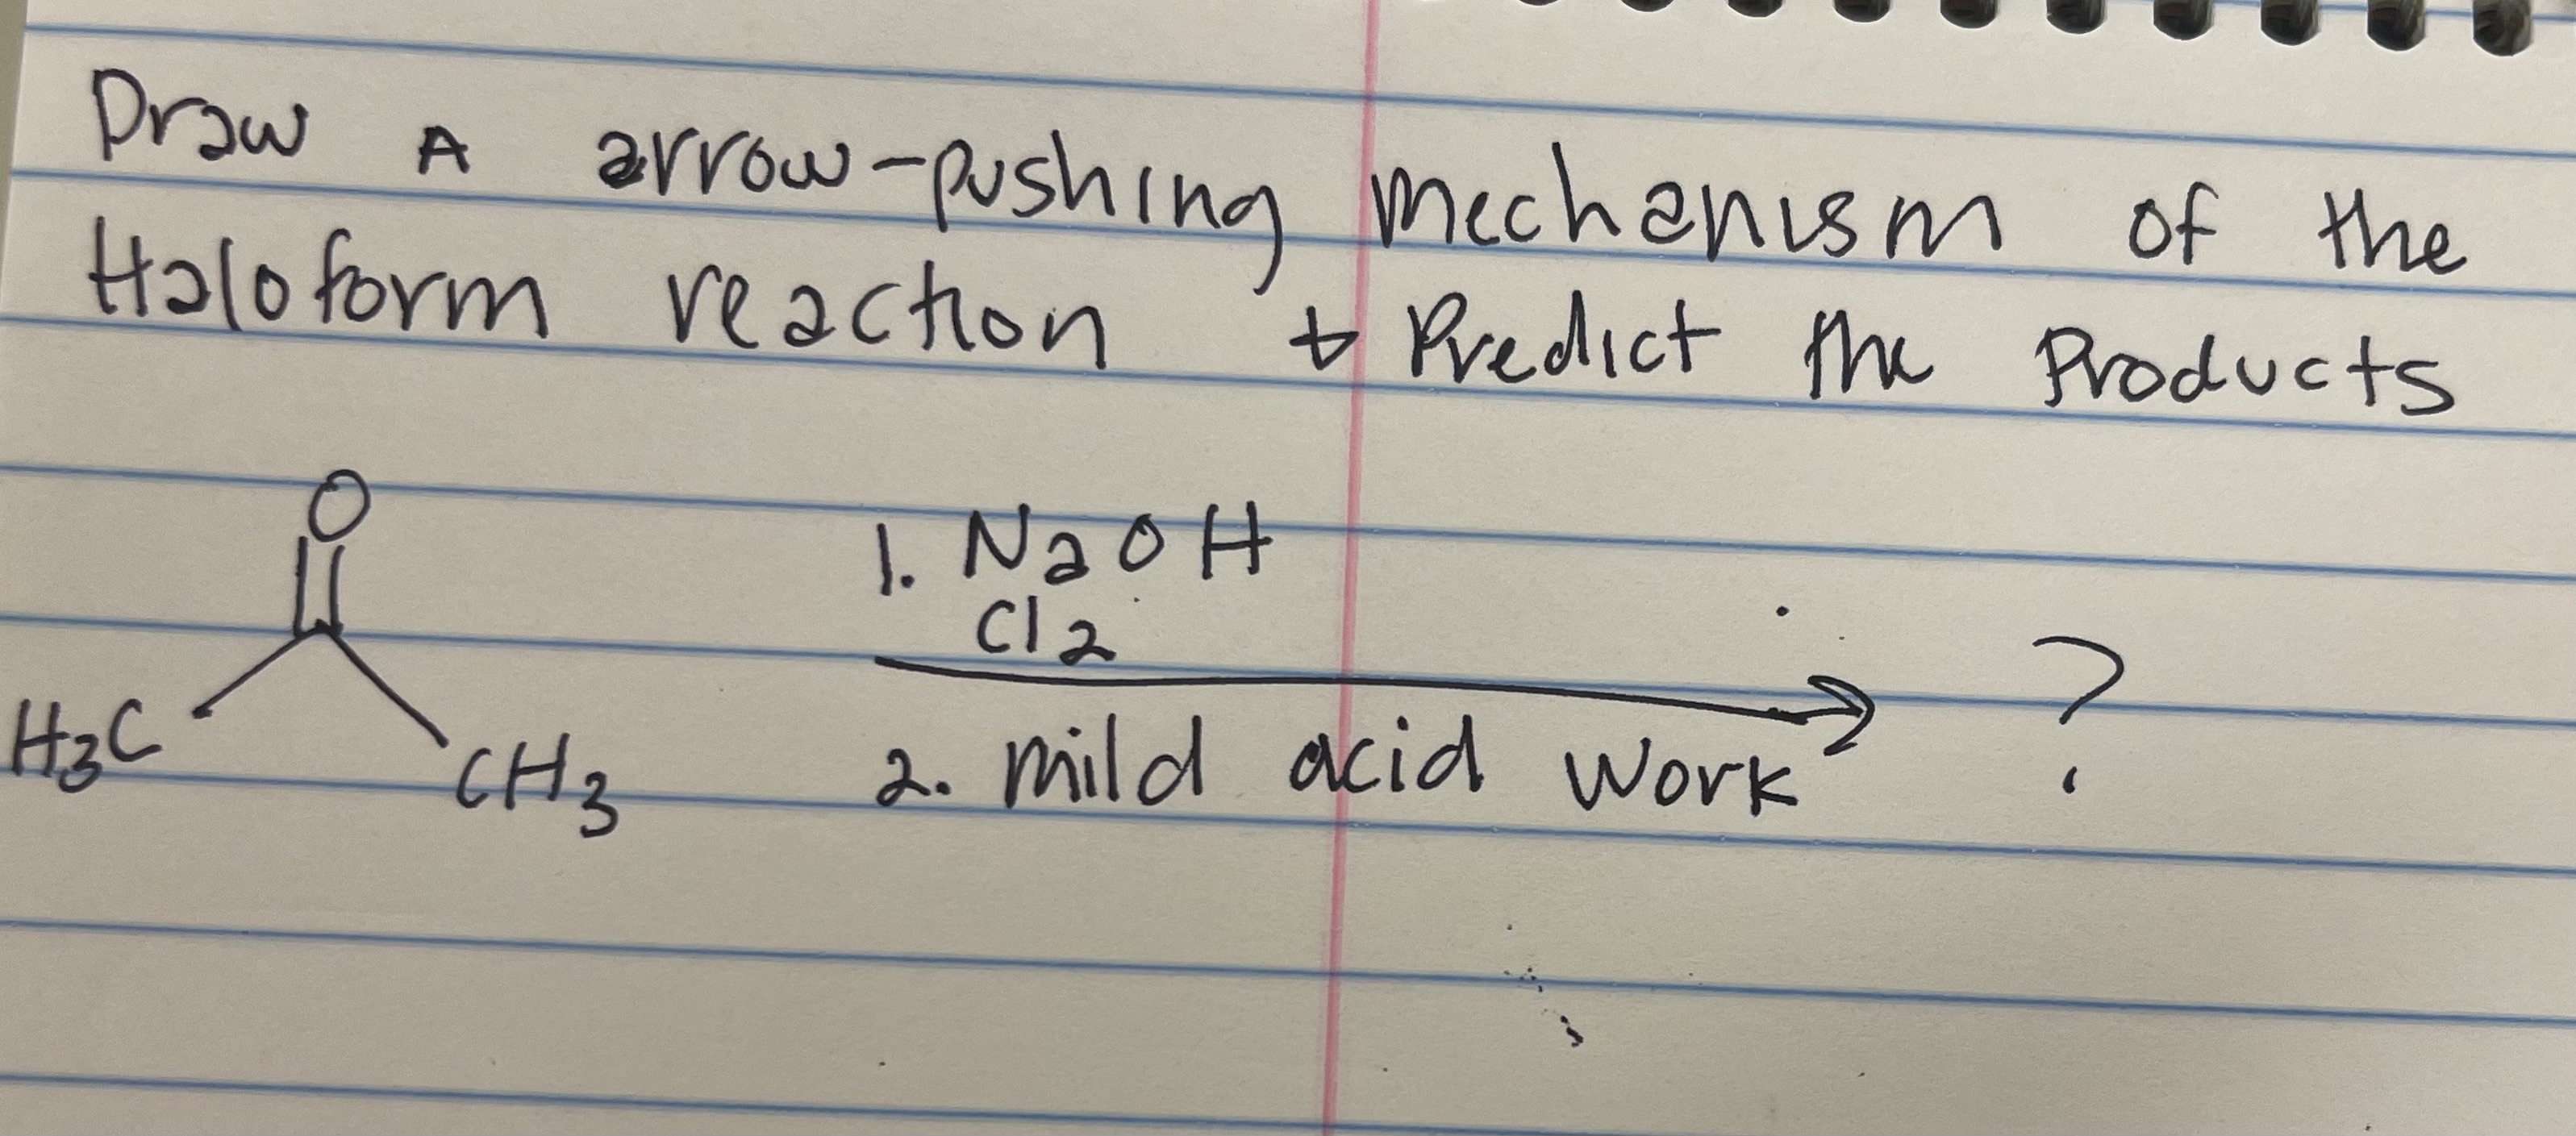 Draw A arrow-pushing mechanism of the
Haloform reaction + Predict the Products
O
1. NaOH
Cl2
?
H3C
CH3
2. mild acid work